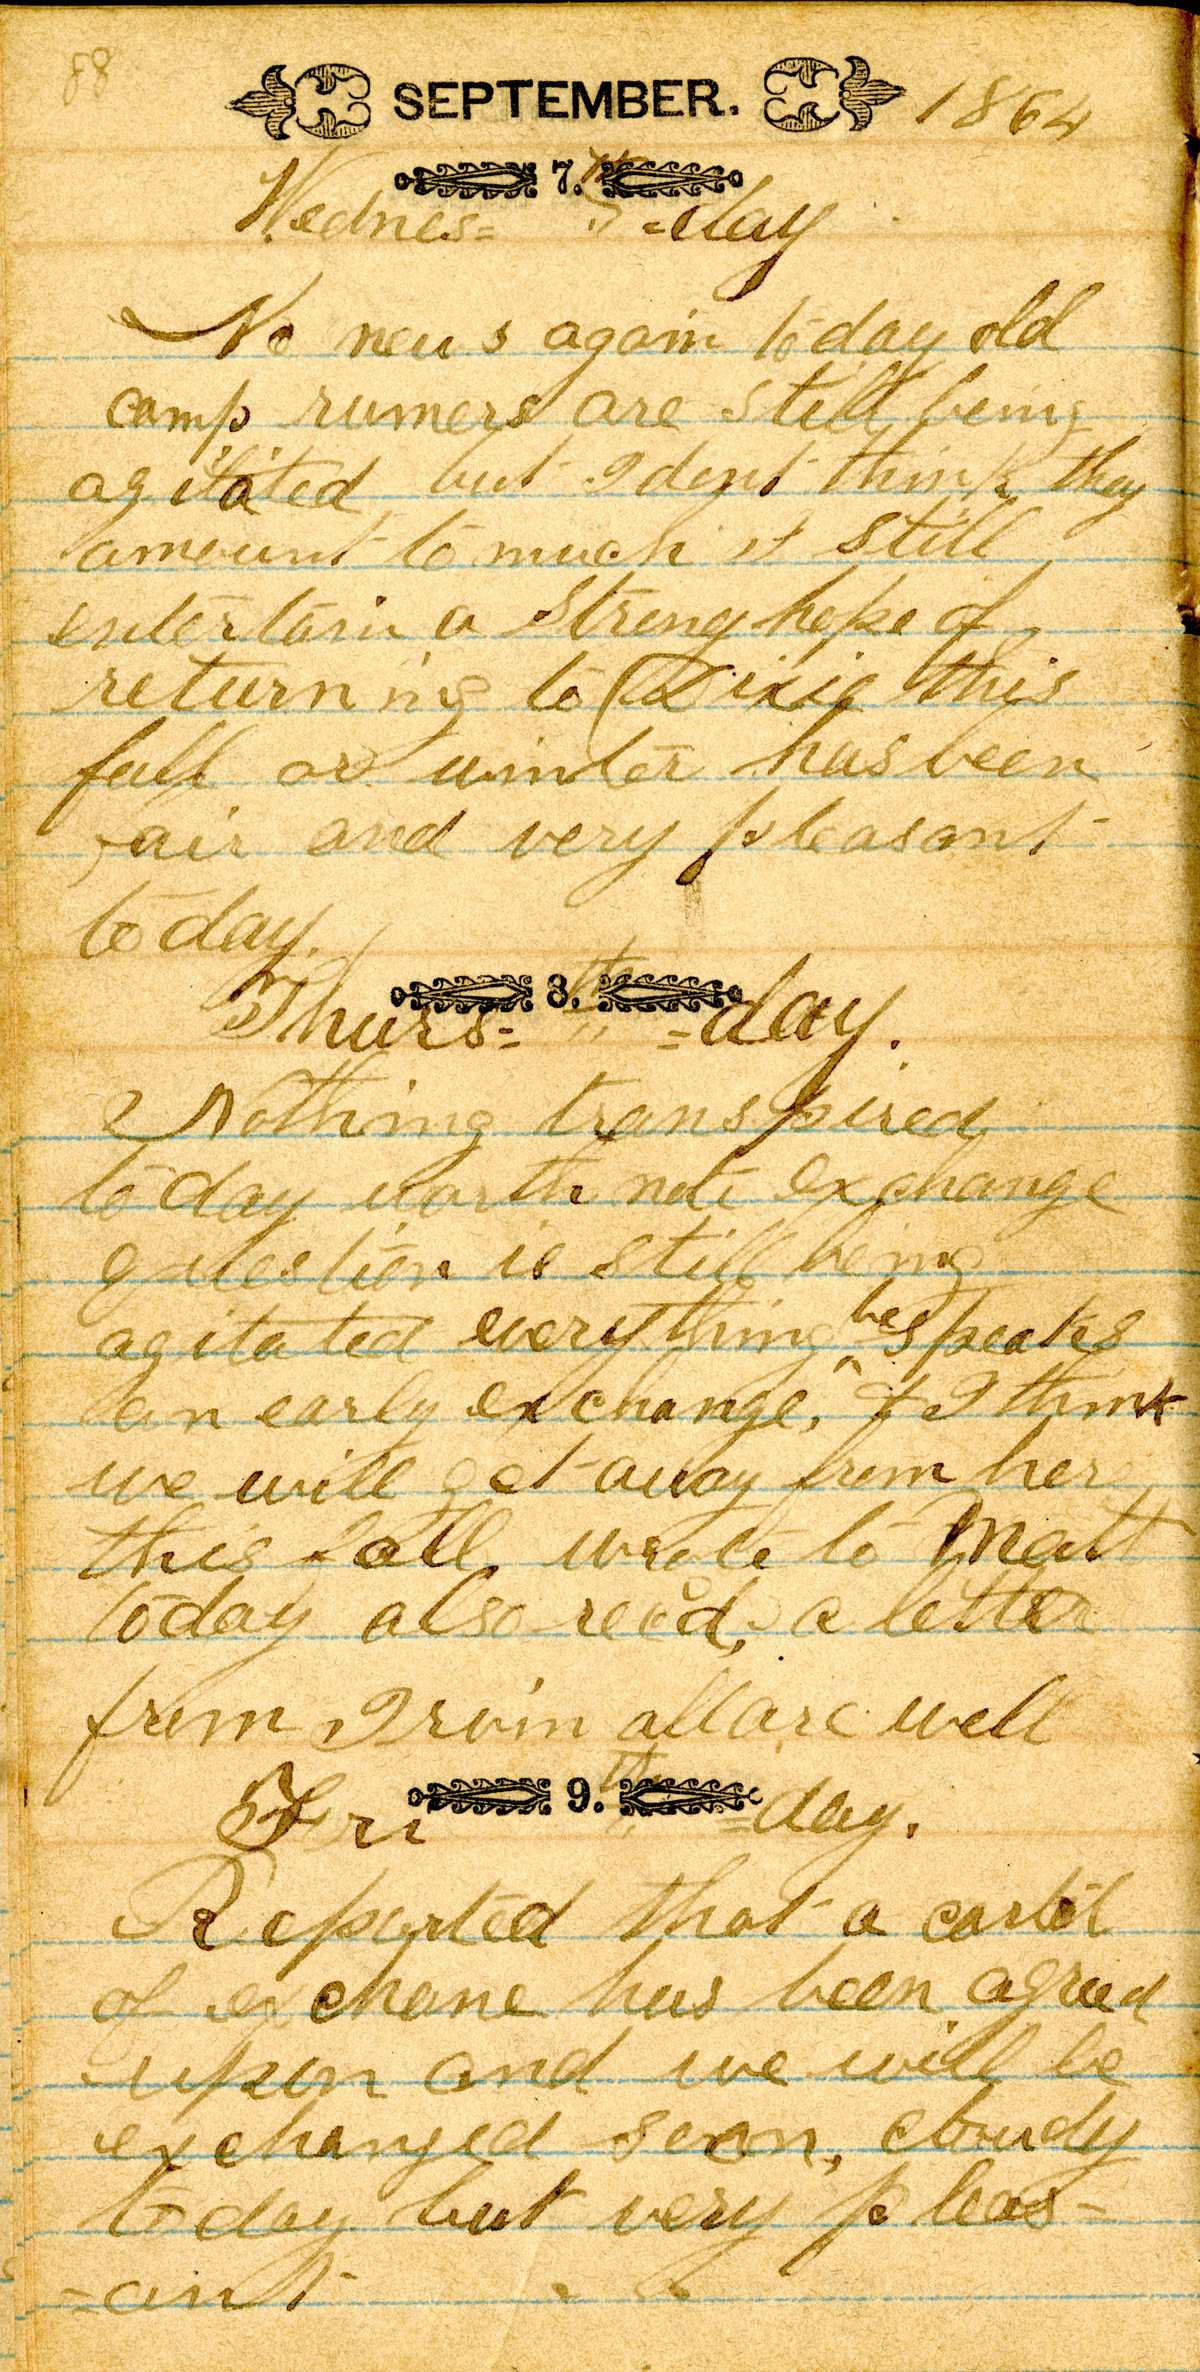 88
SEPTEMBER. 1864
7.th
Wednes= =day
No news again to day old
camp rumers are still being
agitated but I dont think they
amount to much & still
entertain a strong hope of
returning to Dixie this
fall or winter has been
fair and very pleasant
to day.
8.th
Thurs= =day.
Nothing transpired
to day worth note exchange
question is still being
agitated everything bespeaks
an early exchange, & I think
we will get away from her
this fall. wrote to Matt
today also recd, a letter
from Irvin all are well
9.th
Fri =day.
Reported that a cartel
of exchane has been agreed
upon and we will be
exchanged soon, cloudy
to day but very pleas=
=ant